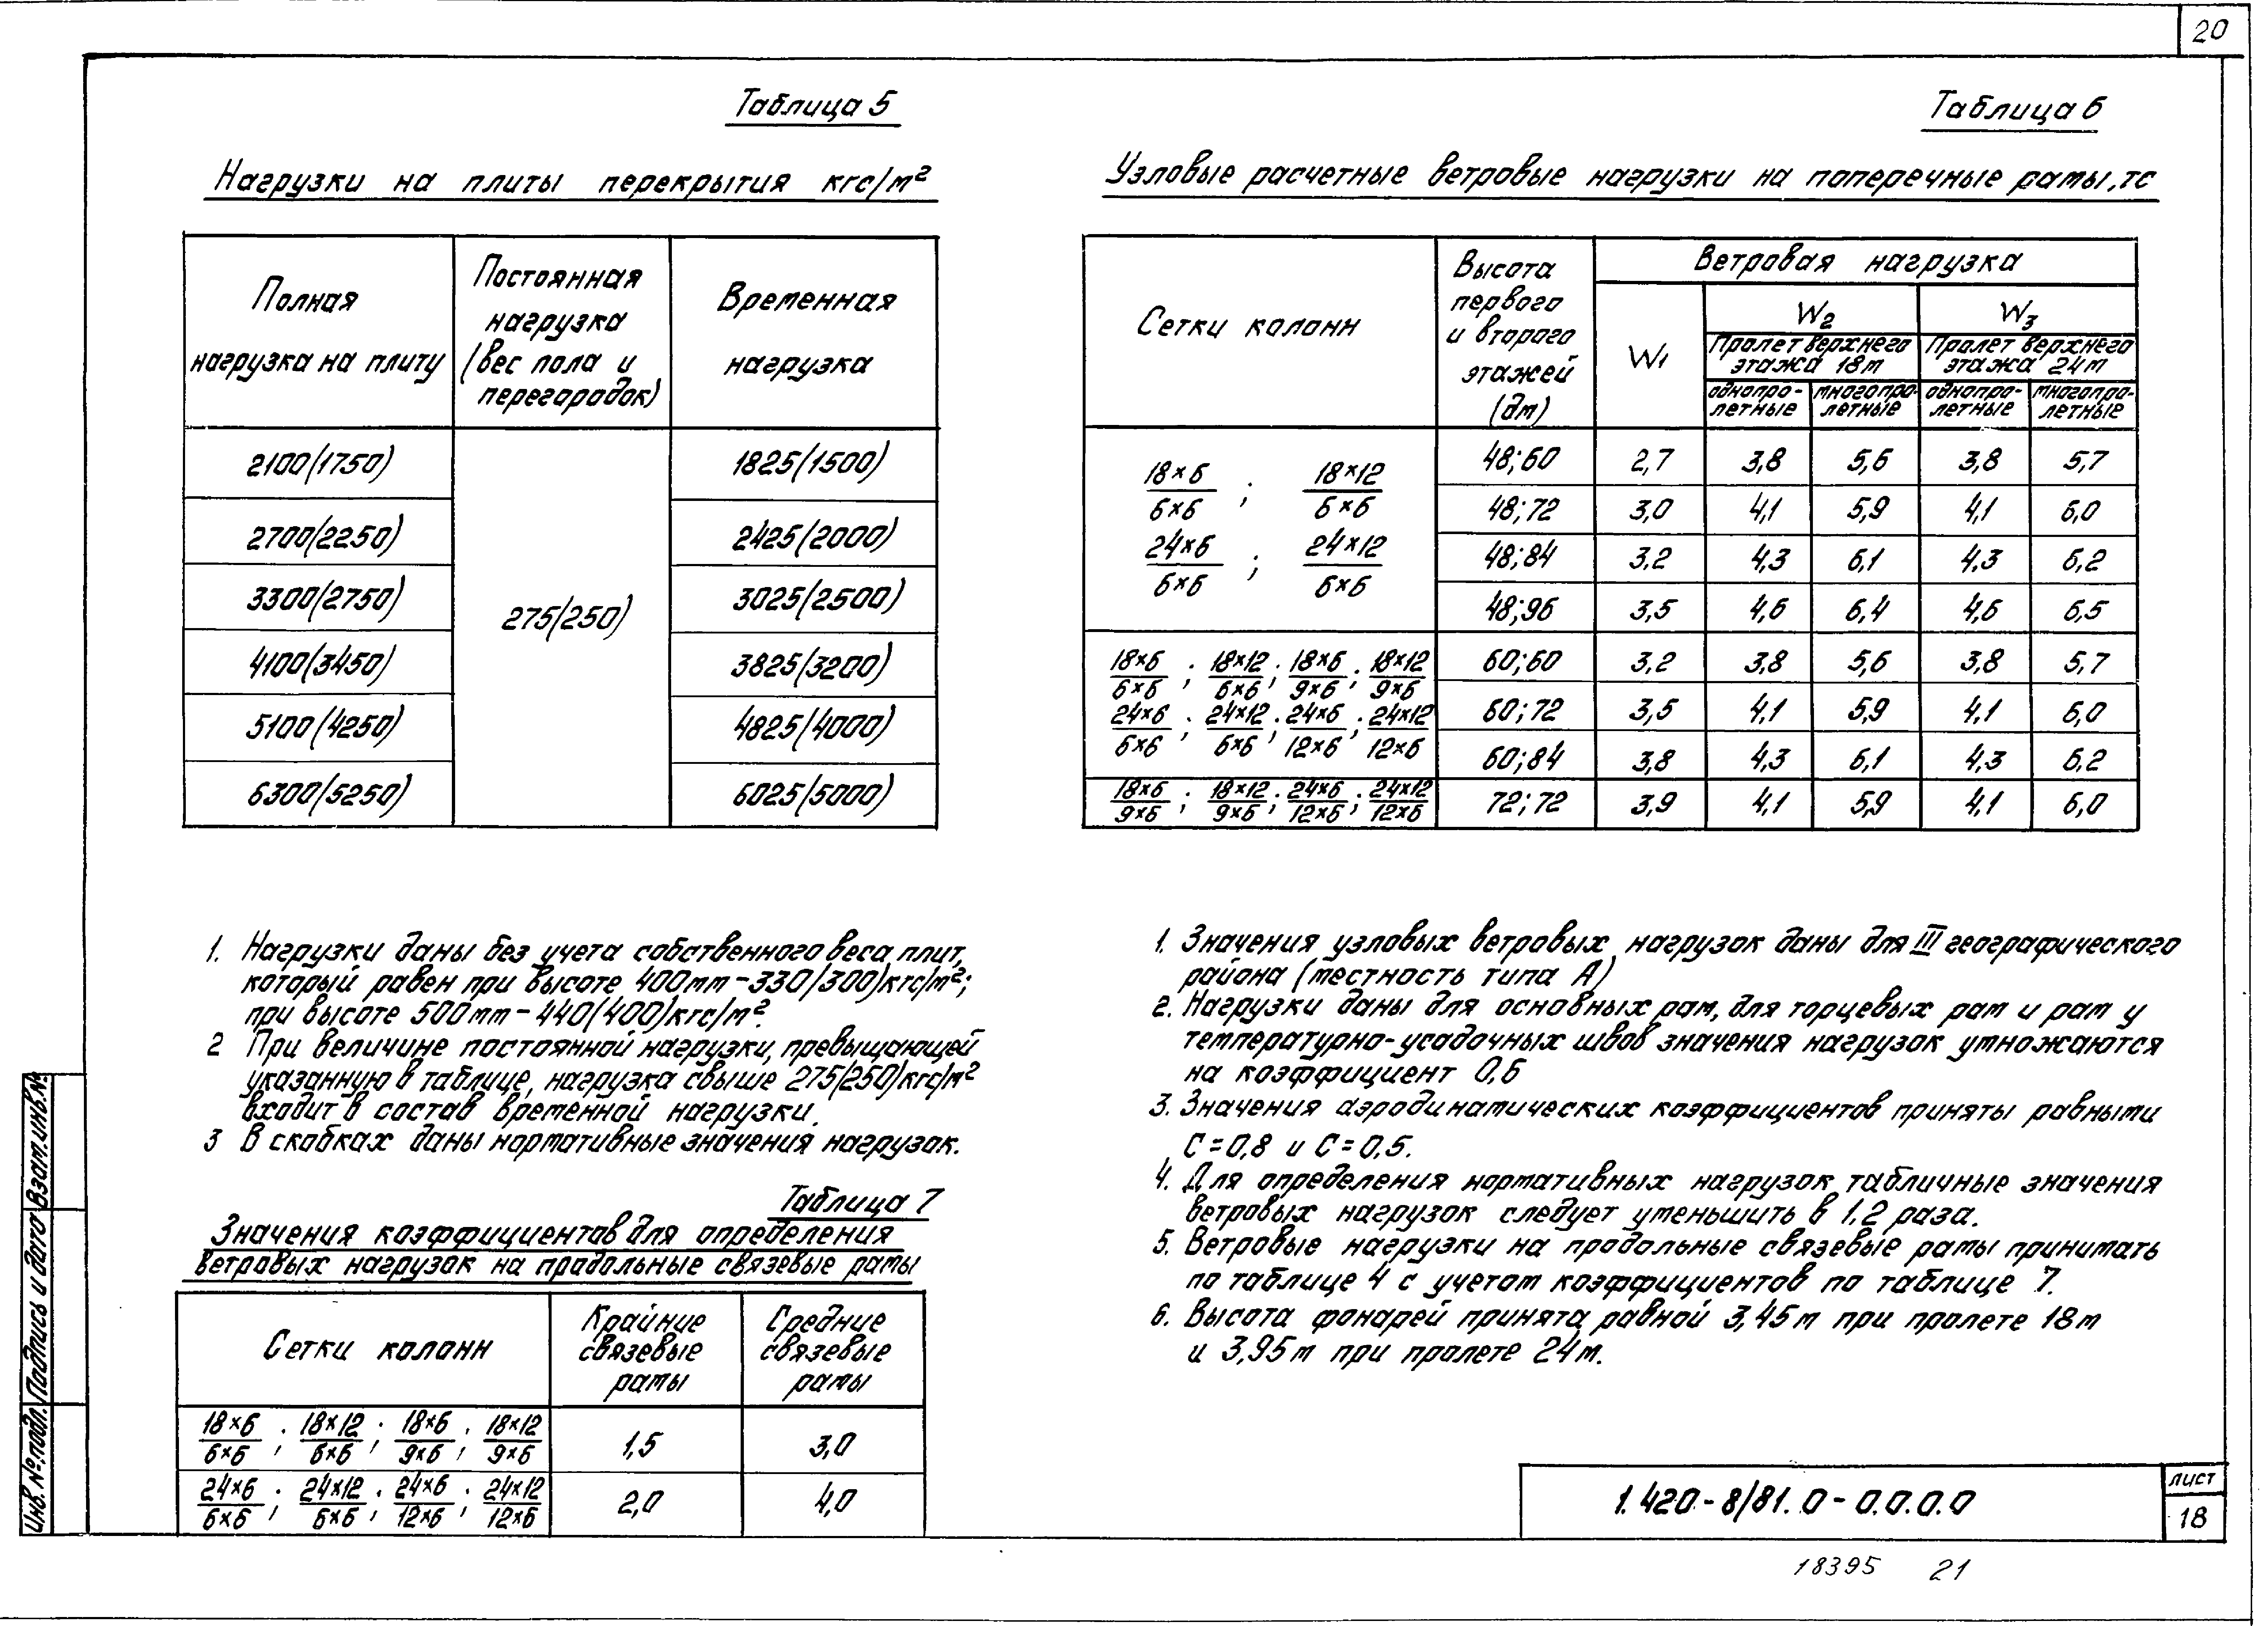 20
Таблица 5
Нагрузки на плиты перекрытия кгс/м²
Полная нагрузка на плиту | Постоянная нагрузка (вес пола и перегородок) | Временная нагрузка
2100(1750) | 275(250) | 1825(1500)
2700(2250) | 2425(2000)
3300(2750) | 3025(2500)
4100(3450) | 3825(3200)
5100(4250) | 4825(4000)
6300(5250) | 6025(5000)
1. Нагрузки даны без учета собственного веса плит,
который равен при высоте 400мм-330(300)кгс/м²;
при высоте 500мм-440(400)кгс/м².
2 При величине постоянной нагрузки, превыщающей
указанную в таблице, нагрузка свыше 275(250)кгс/м²
входит в состав временной нагрузки.
3 В скобках даны нормативные значения нагрузок.
Таблица 7
Значения коэффициентов для определения
ветровых нагрузок на продольные связевые рамы
Сетки колонн | Крайние связевые рамы | Средние связевые рамы
18×6/6×6; 18×12/6×6; 18×6/9×6; 18×12/9×6 | 1,5 | 3,0
24×6/6×6; 24×12/6×6; 24×6/12×6; 24×12/12×6 | 2,0 | 4,0
Таблица 6
Узловые расчетные ветровые нагрузки на поперечные рамы, тс
Сетки колонн | Высота первого и второго этажей (дм) | Ветровая нагрузка
W1 | W2 | W3
Пролет верхнего этажа 18м | Пролет верхнего этажа 24м
однопро-летные | многопро-летные | однопро-летные | многопро-летные
18×6/6×6; 18×12/6×6
24×6/6×6; 24×12/6×6
48;60 | 2,7 | 3,8 | 5,6 | 3,8 | 5,7
48;72 | 3,0 | 4,1 | 5,9 | 4,1 | 6,0
48;84 | 3,2 | 4,3 | 6,1 | 4,3 | 6,2
48;96 | 3,5 | 4,6 | 6,4 | 4,6 | 6,5
18×6/6×6; 18×12/6×6; 18×6/9×6; 18×12/9×6
24×6/6×6; 24×12/6×6; 24×6/12×6; 24×12/12×6
60;60 | 3,2 | 3,8 | 5,6 | 3,8 | 5,7
60;72 | 3,5 | 4,1 | 5,9 | 4,1 | 6,0
60;84 | 3,8 | 4,3 | 6,1 | 4,3 | 6,2
18×6/9×6; 18×12/9×6; 24×6/12×6; 24×12/12×6 | 72;72 | 3,9 | 4,1 | 5,9 | 4,1 | 6,0
1. Значения узловых ветровых нагрузок даны для III географического
района (местность типа А)
2. Нагрузки даны для основных рам, для торцевых рам и рам у
температурно-усадочных швов значения нагрузок умножаются
на коэффициент 0,6
3. Значения аэродинамических коэффициентов приняты равными
С=0,8 и С=0,5.
4. Для определения нормативных нагрузок табличные значения
ветровых нагрузок следует уменьшить в 1,2 раза.
5. Ветровые нагрузки на продольные связевые рамы принимать
по таблице 4 с учетом коэффициентов по таблице 7.
6. Высота фонарей принята равной 3,45м при пролете 18м
и 3,95м при пролете 24м.
Инв.№подл. Подпись и дата Взам.инв.№
1.420-8/81.0-0.0.0.0
лист
18
18395 21